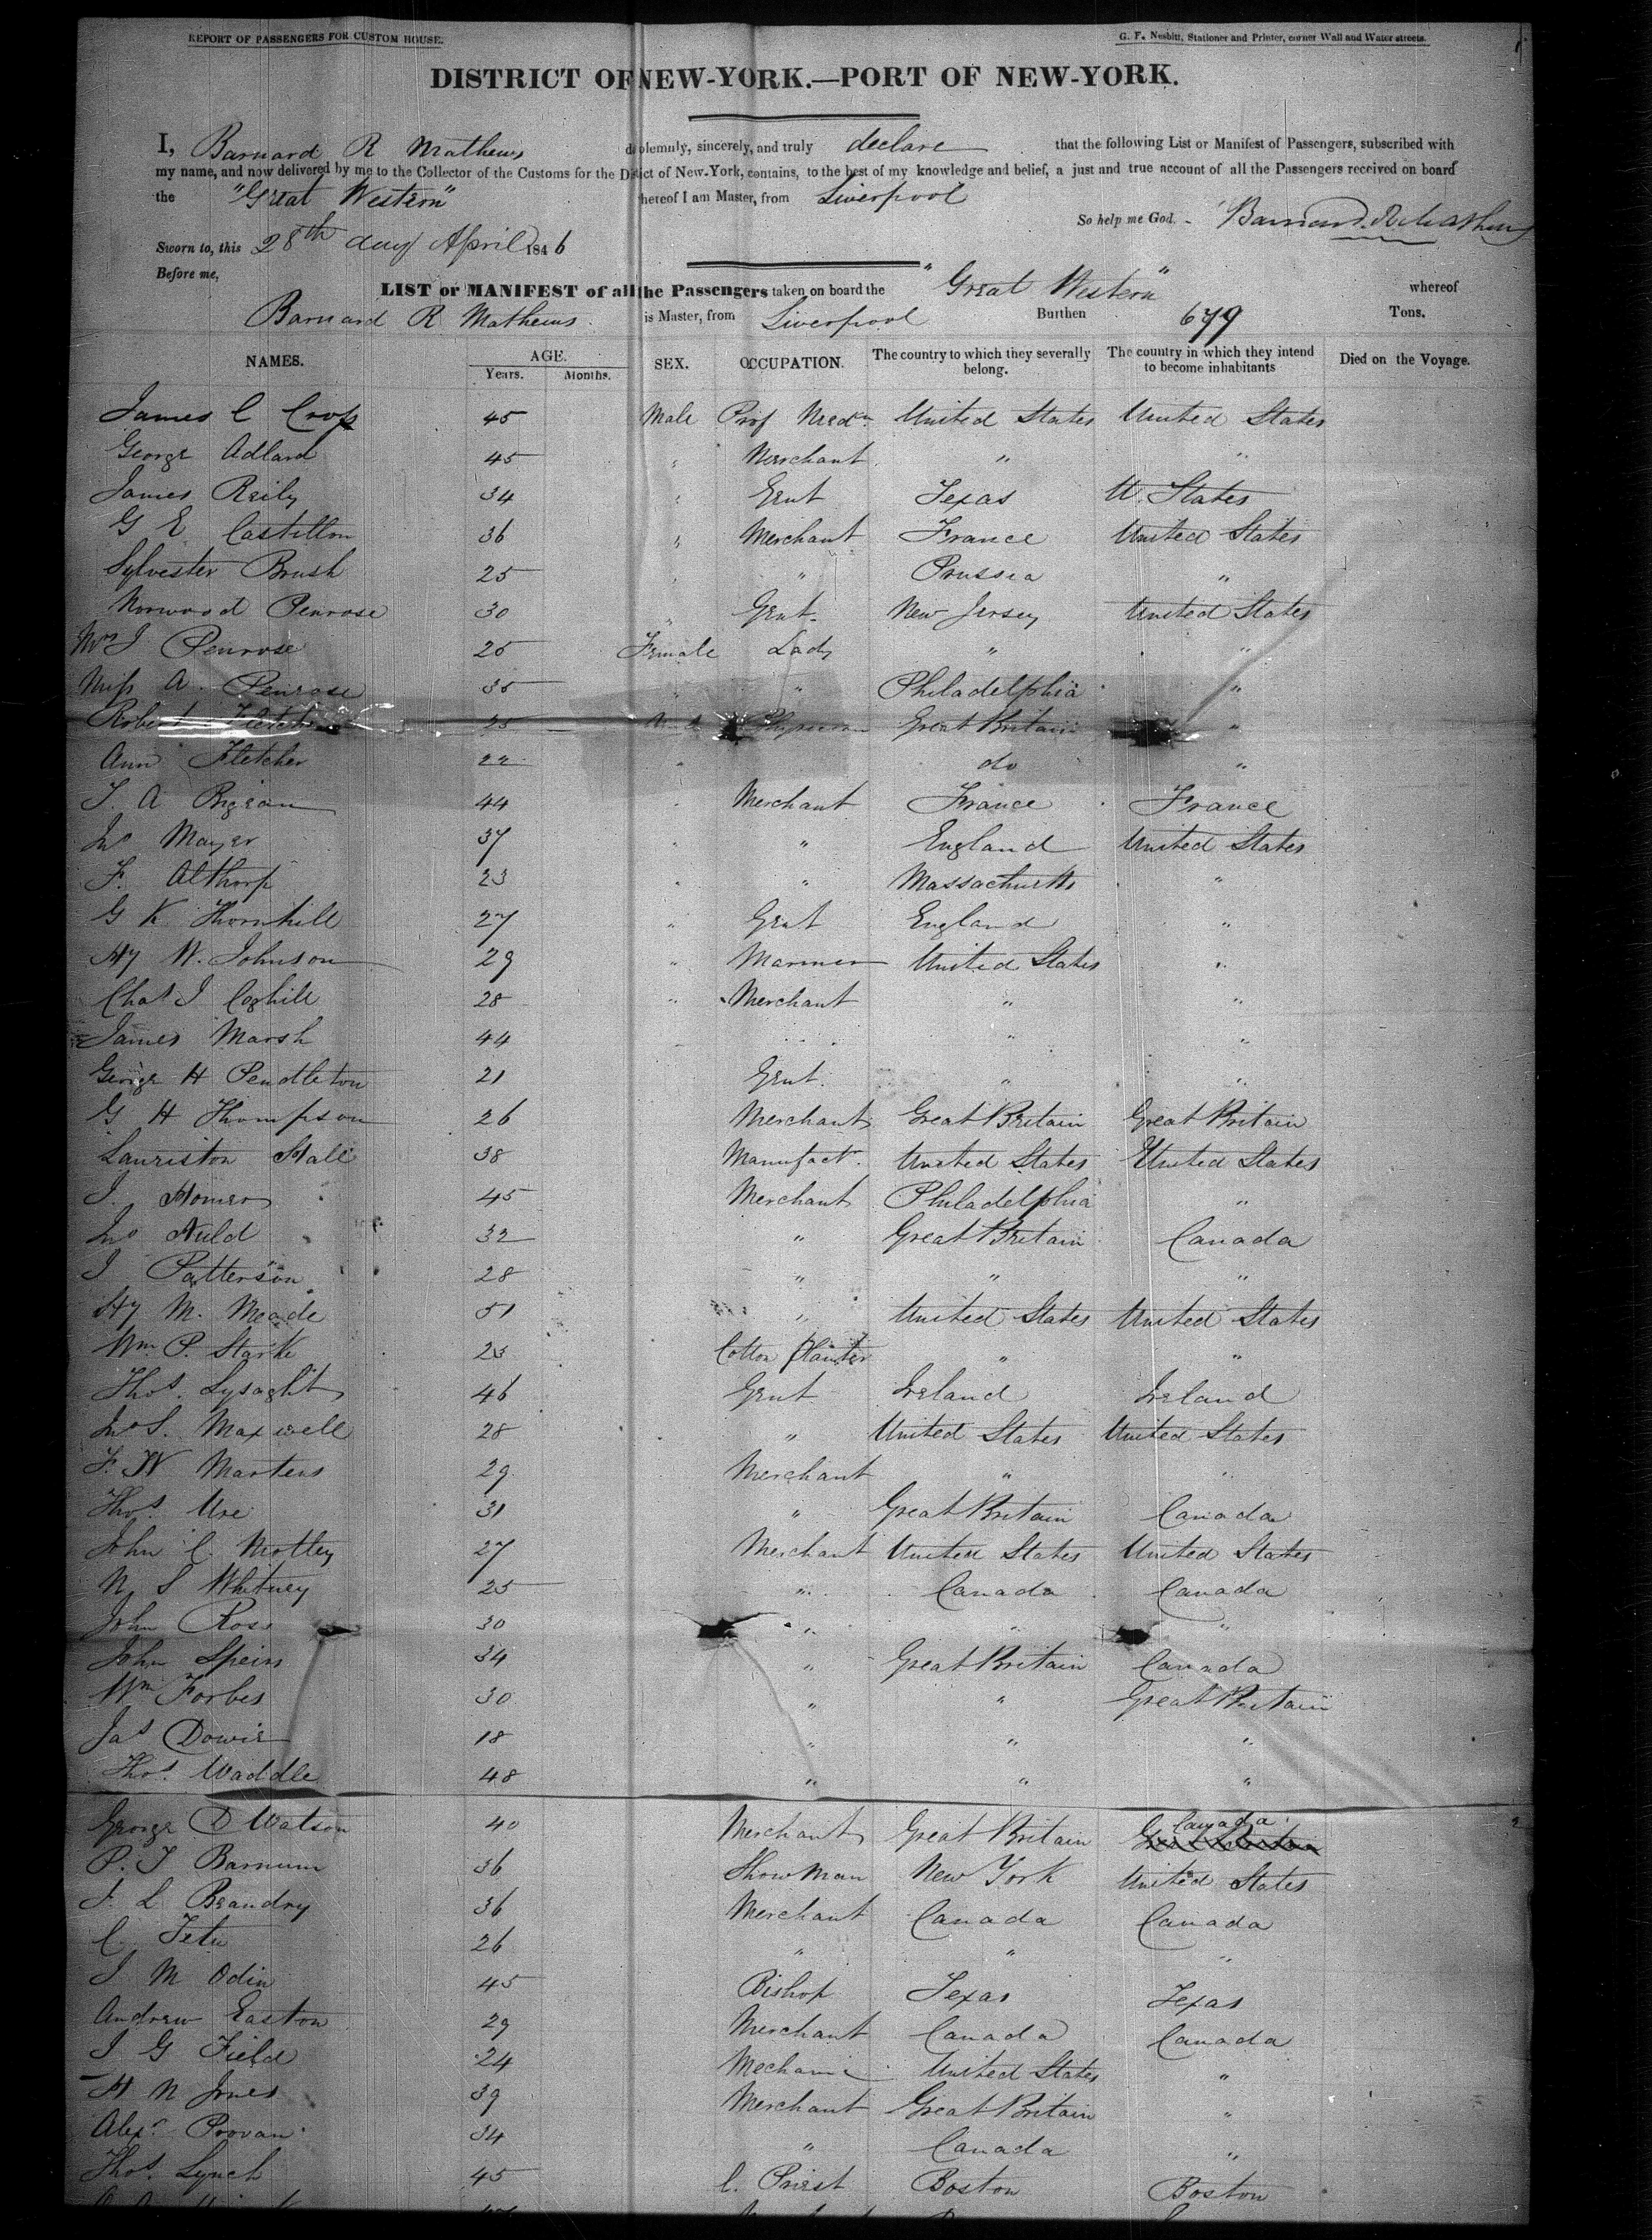 REPORT OF PASSENGERS FOR CUSTOM HOUSE.
G. F. Nesbitt, Stationer and Printer, corner Wall and Water streets.
DISTRICT OF NEW-YORK.—PORT OF NEW-YORK.
I, Barnard R Mathews do solemnly, sincerely, and truly declare that the following List or Manifest of Passengers, subscribed with
my name, and now delivered by me to the Collector of the Customs for the District of New-York, contains, to the best of my knowledge and belief, a just and true account of all the Passengers received on board
the "Great Western" whereof I am Master, from Liverpool
So help me God. Barnard R Mathews
Sworn to, this 28th day April 1846
Before me,
LIST or MANIFEST of all the Passengers taken on board the "Great Western" whereof
Barnard R Mathews is Master, from Liverpool Burthen 679 Tons.
NAMES. AGE. Years. Months. SEX. OCCUPATION. The country to which they severally belong. The country in which they intend to become inhabitants Died on the Voyage.
James C Cross 45 Male Prof Medn United States United States
George Adlard 45 " Merchant " "
James Reily 34 " Gent Texas U. States
G E Castillon 36 " Merchant France United States
Sylvester Brush 25 " " Prussia "
Norwood Penrose 30 " Gent. New Jersey United States
Mrs J Penrose 25 Female Lady " "
Miss A. Penrose 35 " " Philadelphia "
Robert Fletcher 25 Great Britain "
Ann Fletcher 22 " do "
J. A 44 " Merchant France France
Jno Mayer 37 " " England United States
F. Althorp 23 " " Massachusetts "
G K Thornhill 27 " Gent England "
Hy W. Johnson 29 " Mariner United States "
Chas J Coghill 28 " Merchant " "
James Marsh 44 " " "
George H Pendleton 21 Gent. " "
G H Thompson 26 Merchant Great Britain Great Britain
Lauriston Hall 38 Manufactr. United States United States
J. Homer 45 Merchant Philadelphia "
Jno Auld 32 " Great Britain Canada
J Patterson 28 " " "
Hy M. Meade 51 " United States United States
Wm. P. Starke 23 Cotton Planter " "
Thos. Lysaght 46 Gent Ireland Ireland
Jno S. Maxwell 28 " United States United States
F. W Martens 29 Merchant " "
Thos. Ure 31 " Great Britain Canada
John C. Motley 27 Merchant United States United States
N. S Whitney 25 " Canada Canada
John Ross 30 " " "
John Speirs 34 " Great Britain Canada
Wm Forbes 30 " " Great Britain
Jas Dowie 18 " " "
Thos. Waddle 48 " " "
George D Watson 40 Merchant Great Britain Canada
P. T Barnum 36 Show Man New York United States
J. L Beaudry 36 Merchant Canada Canada
C Tetu 26 " " "
J M Odin 45 Bishop Texas Texas
Andrew Easton 29 Merchant Canada Canada
J G Field 24 Mechanic United States "
H N Jones 39 Merchant Great Britain "
Alexr. Provan 34 " Canada "
Thos. Lynch 45 C. Priest Boston Boston